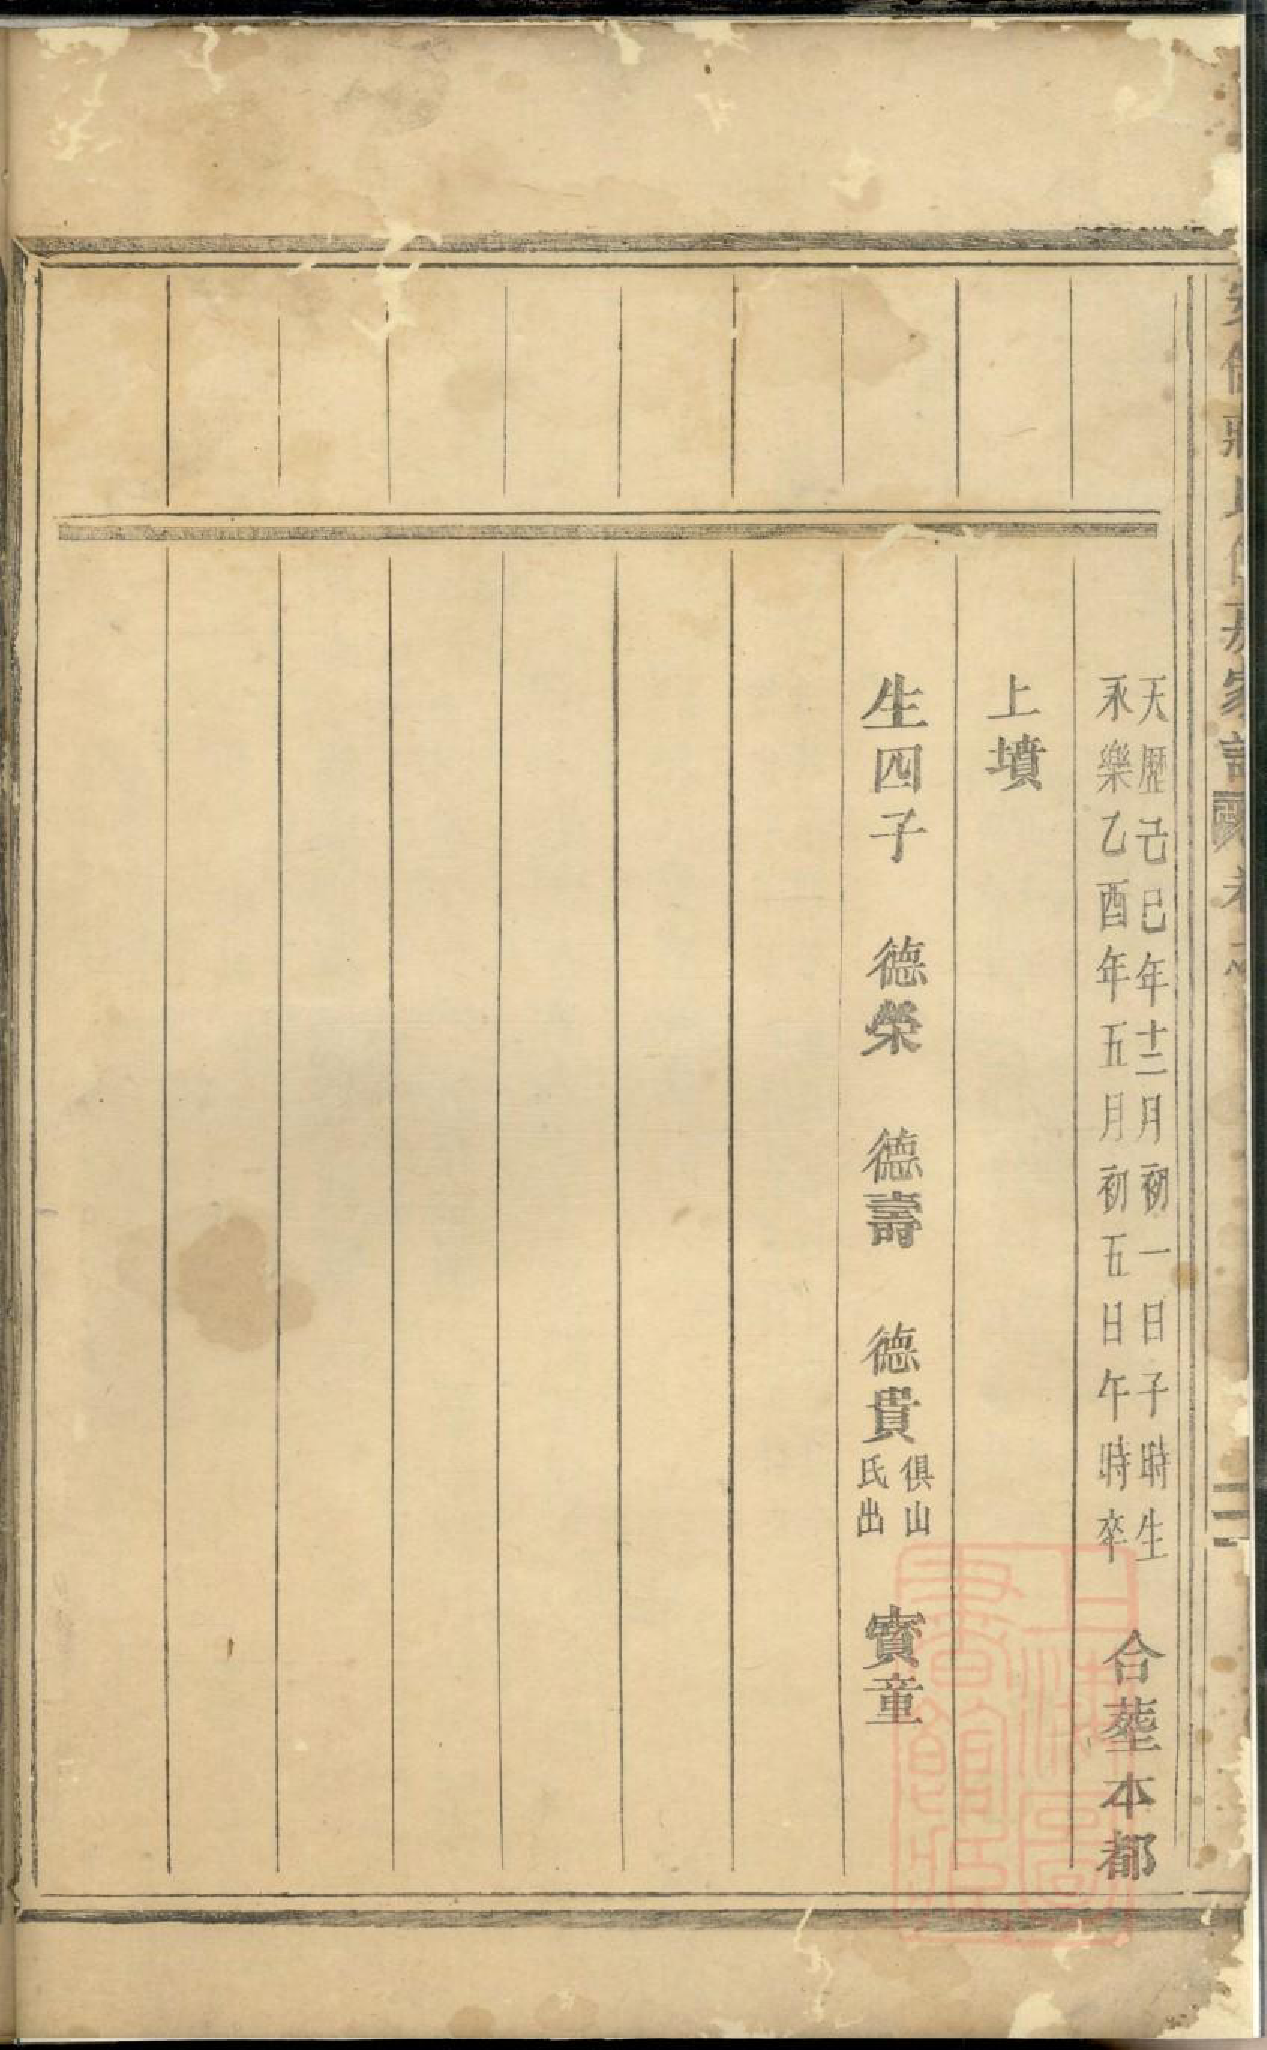 天歷己巳年十二月初一日子時生
永樂乙酉年五月初五日午時卒
合塟本都
上墳
生四子　德榮　德壽　德貴
俱山
氏出
寳童